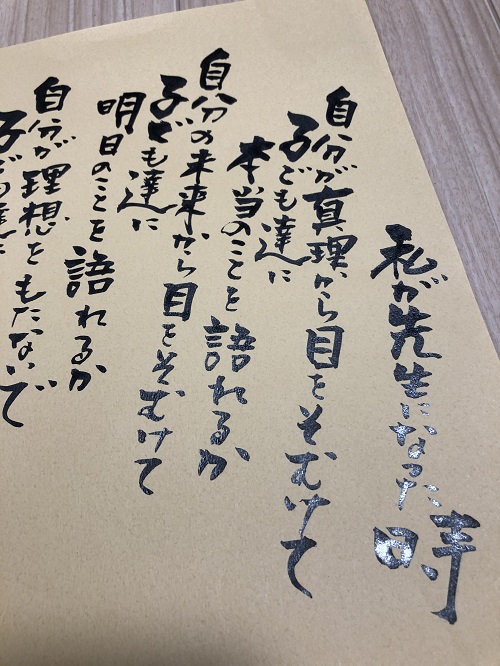 私が先生になった時
自分が真理から目をそむけて
子ども達に
本当のことを 語れるか
自分の未来から目をそむけて
子ども達に
明日のことを 語れるか
自分が理想をもたないで
子ども達に